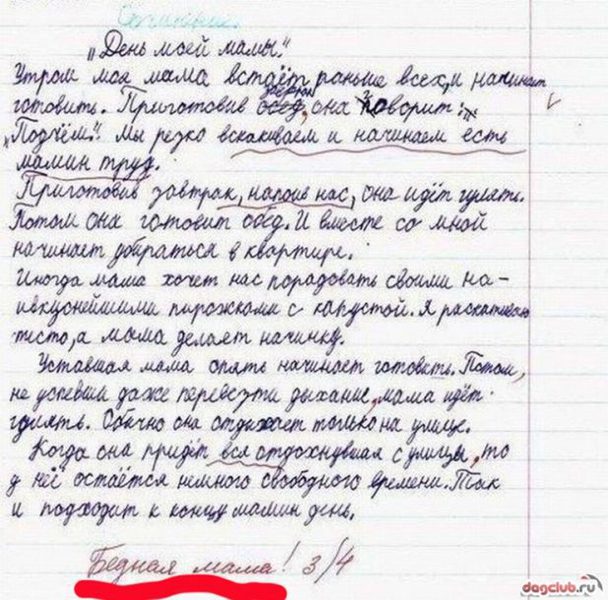 Сочинение.
„День моей мамы."
Утром моя мама встаёт раньше всех, и начинает
готовить. Приготовив завтрак, она говорит:
„Подъём". Мы резко вскакиваем и начинаем есть
мамин труд.
Приготовив завтрак, напоив нас, она идёт гулять.
Потом она готовит обед. И вместе со мной
начинает убираться в квартире.
Иногда мама хочет нас порадовать своими на-
ивкуснейшими пирожками с капустой. Я раскатываю
тесто, а мама делает начинку.
Уставшая мама опять начинает готовить. Потом,
не успевши даже перевезти дыхание, мама идёт
гулять. Обычно она отдыхает только на улице.
Когда она придёт вся отдохнувшая с улицы, то
у неё остаётся немного свободного времени. Так
и подходит к концу мамин день.
Бедная мама! 3/4
dagclub.ru